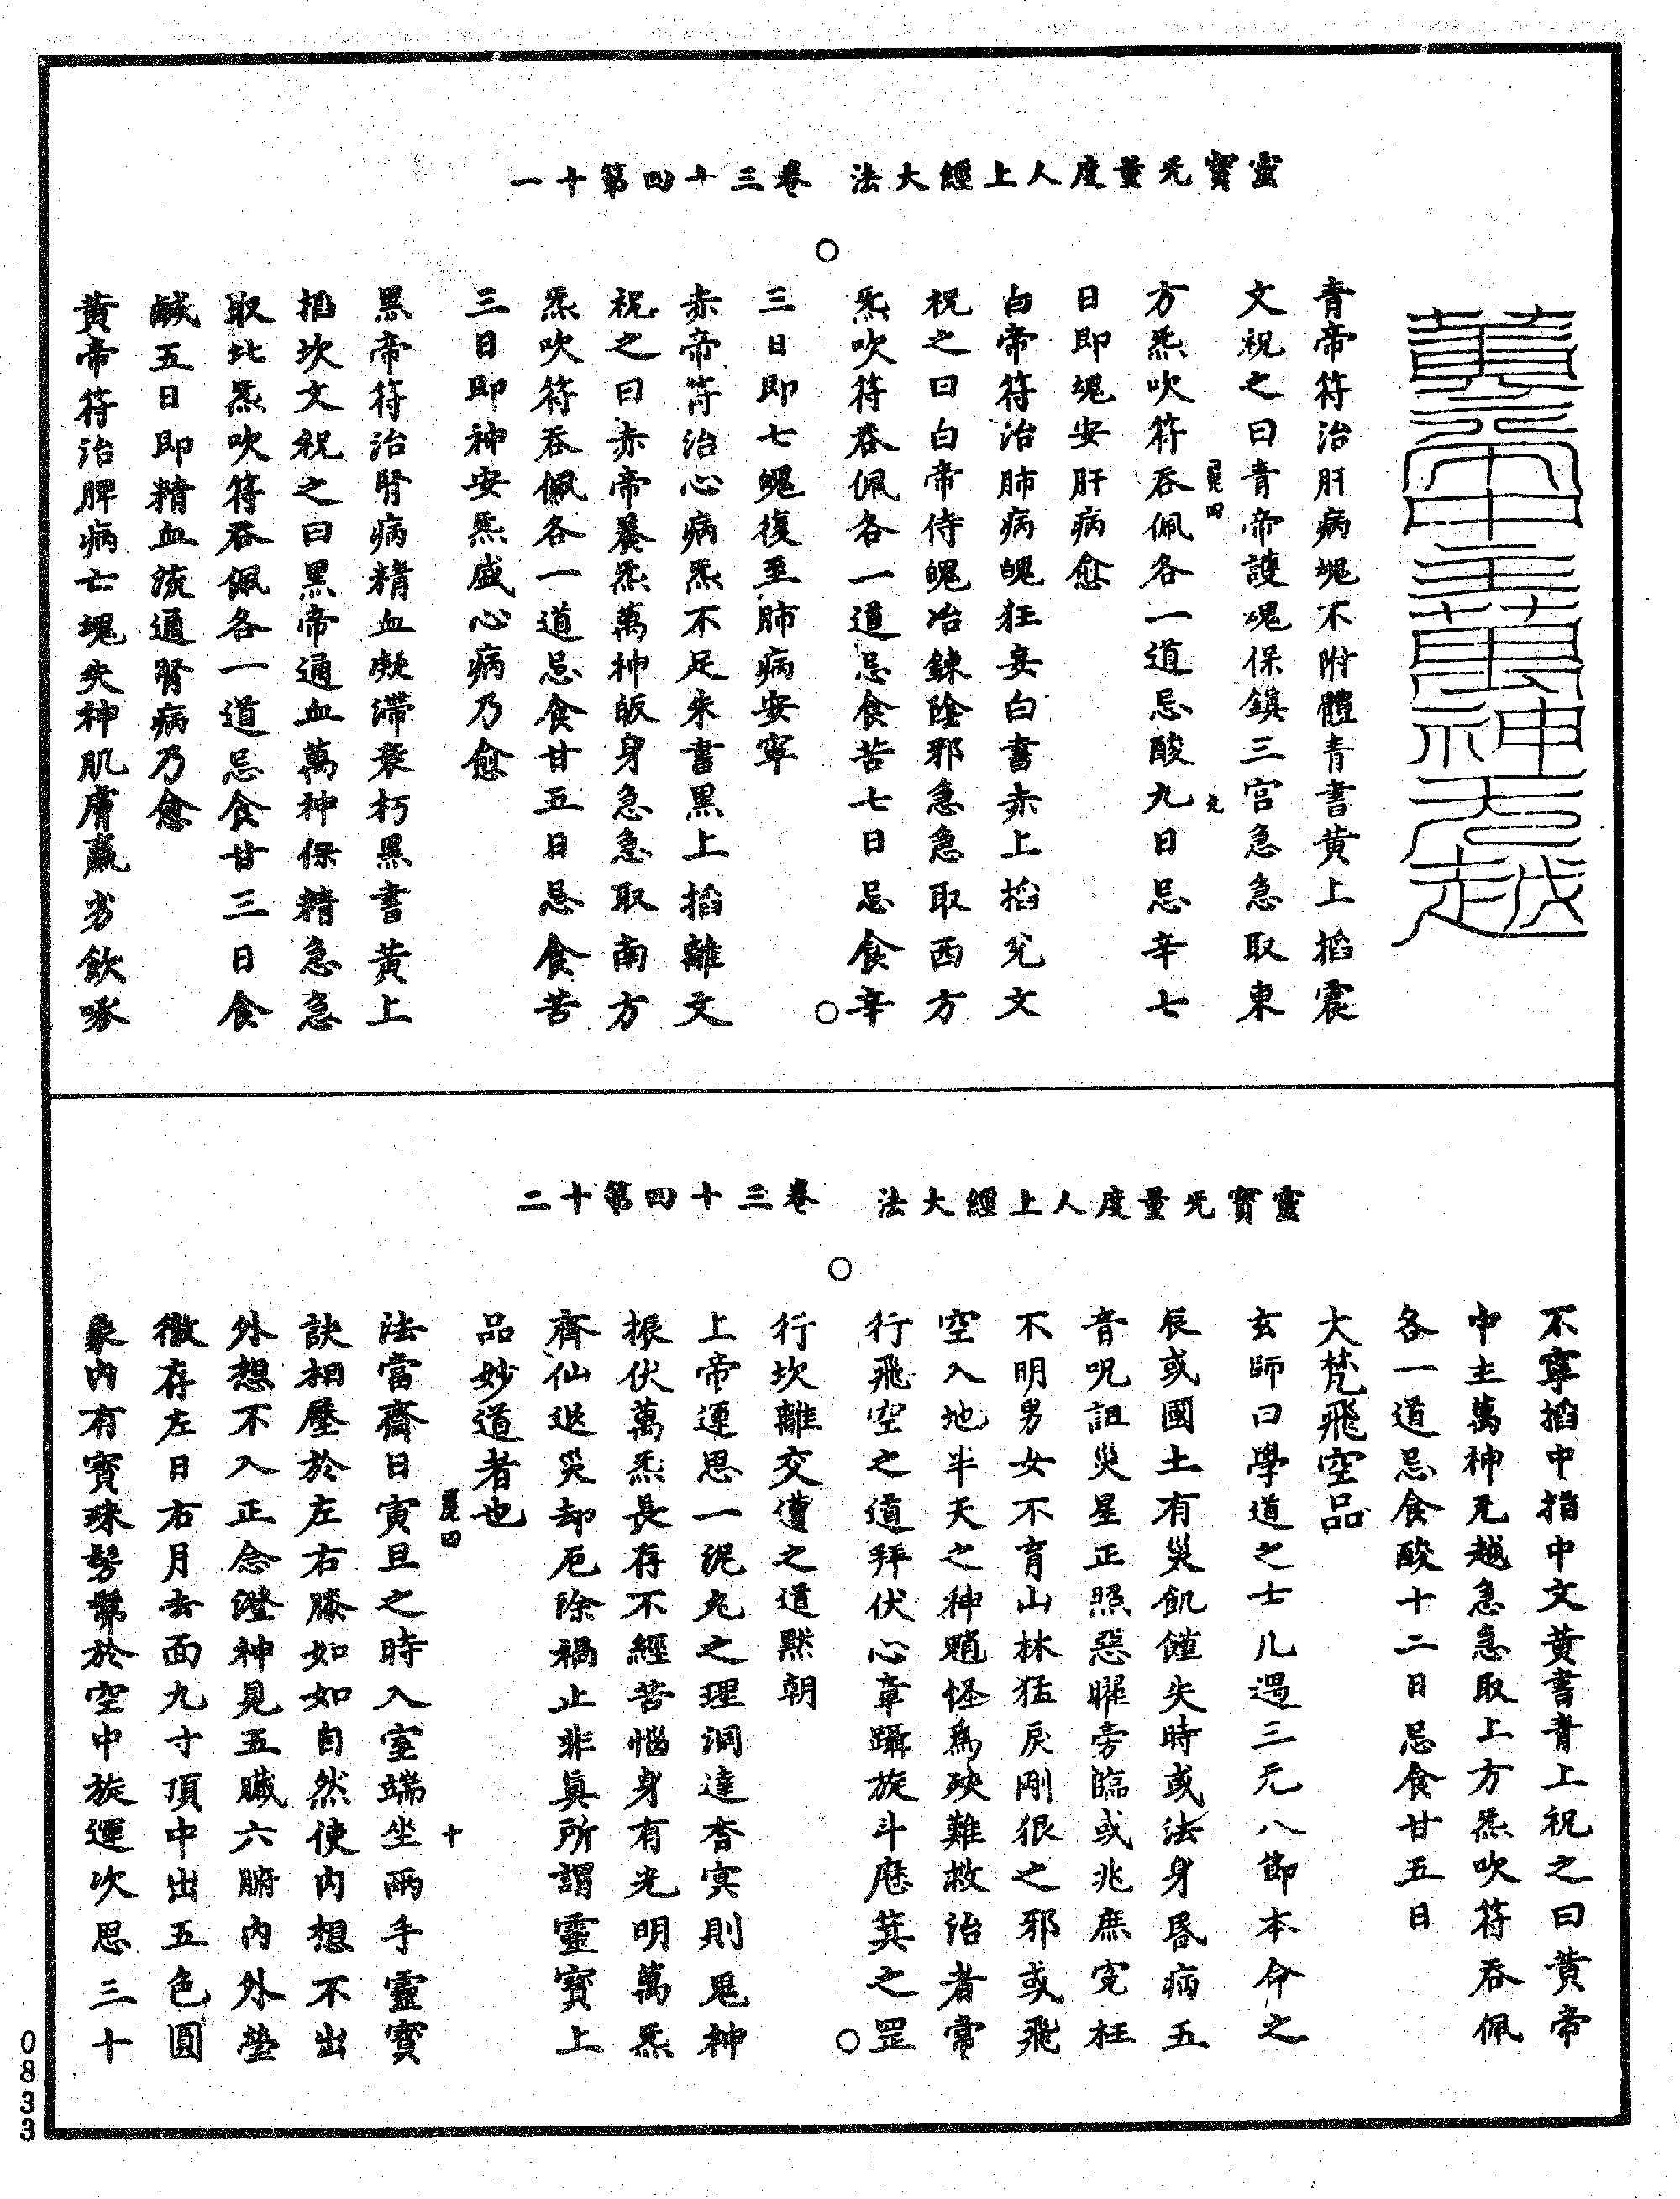 靈寶无量度人上經大法　卷三十四第十一
青帝符治肝病魂不附體青書黄上搯震
文祝之曰青帝護魂保鎮三宮急急取東
方炁吹符吞佩各一道忌酸九日忌辛七
日即魂安肝病愈
白帝符治肺病魄狂妄白書赤上搯兊文
祝之曰白帝侍魄冶鍊陰邪急急取西方
炁吹符吞佩各一道忌食苦七日忌食辛
三日即七魄復至肺病安寧
赤帝符治心病炁不足朱書黑上搯離文
祝之曰赤帝養炁萬神皈身急急取南方
炁吹符吞佩各一道忌食甘五日忌食苦
三日即神安炁盛心病乃愈
黑帝符治腎病精血凝滯衰朽黑書黃上
搯坎文祝之曰黑帝通血萬神保精急急
取北炁吹符吞佩各一道忌食甘三日食
鹹五日即精血流通腎病乃愈
黃帝符治脾病亡魂失神肌膚羸劣飲啄
靈寶无量度人上經大法　卷三十四第十二
不寧搯中指中文黃書青上祝之曰黃帝
中主萬神无越急急取上方炁吹符吞佩
各一道忌食酸十二日忌食甘五日
大梵飛空品
玄師曰學道之士凡遇三元八節本命之
辰或國土有災飢饉失時或法身昬病五
音呪詛災星正照惡曜旁臨或兆庶寃枉
不明男女不育山林猛戾剛狠之邪或飛
空入地半天之神魈怪爲殃難救治者常
行飛空之道拜伏心章躡旋斗歷箕之罡
行坎離交遘之道默朝
上帝運思一泥丸之理洞達杳冥則鬼神
振伏萬炁長存不經苦惱身有光明萬炁
齊仙退災却厄除禍止非眞所謂靈寶上
品妙道者也
法當齋日寅旦之時入室端坐兩手靈寶
訣相壓於左右膝如如自然使內想不出
外想不入正念澄神見五臟六腑內外瑩
徹存左日右月去面九寸頂中出五色圓
象內有寶珠髣髴於空中旋運次思三十
0833